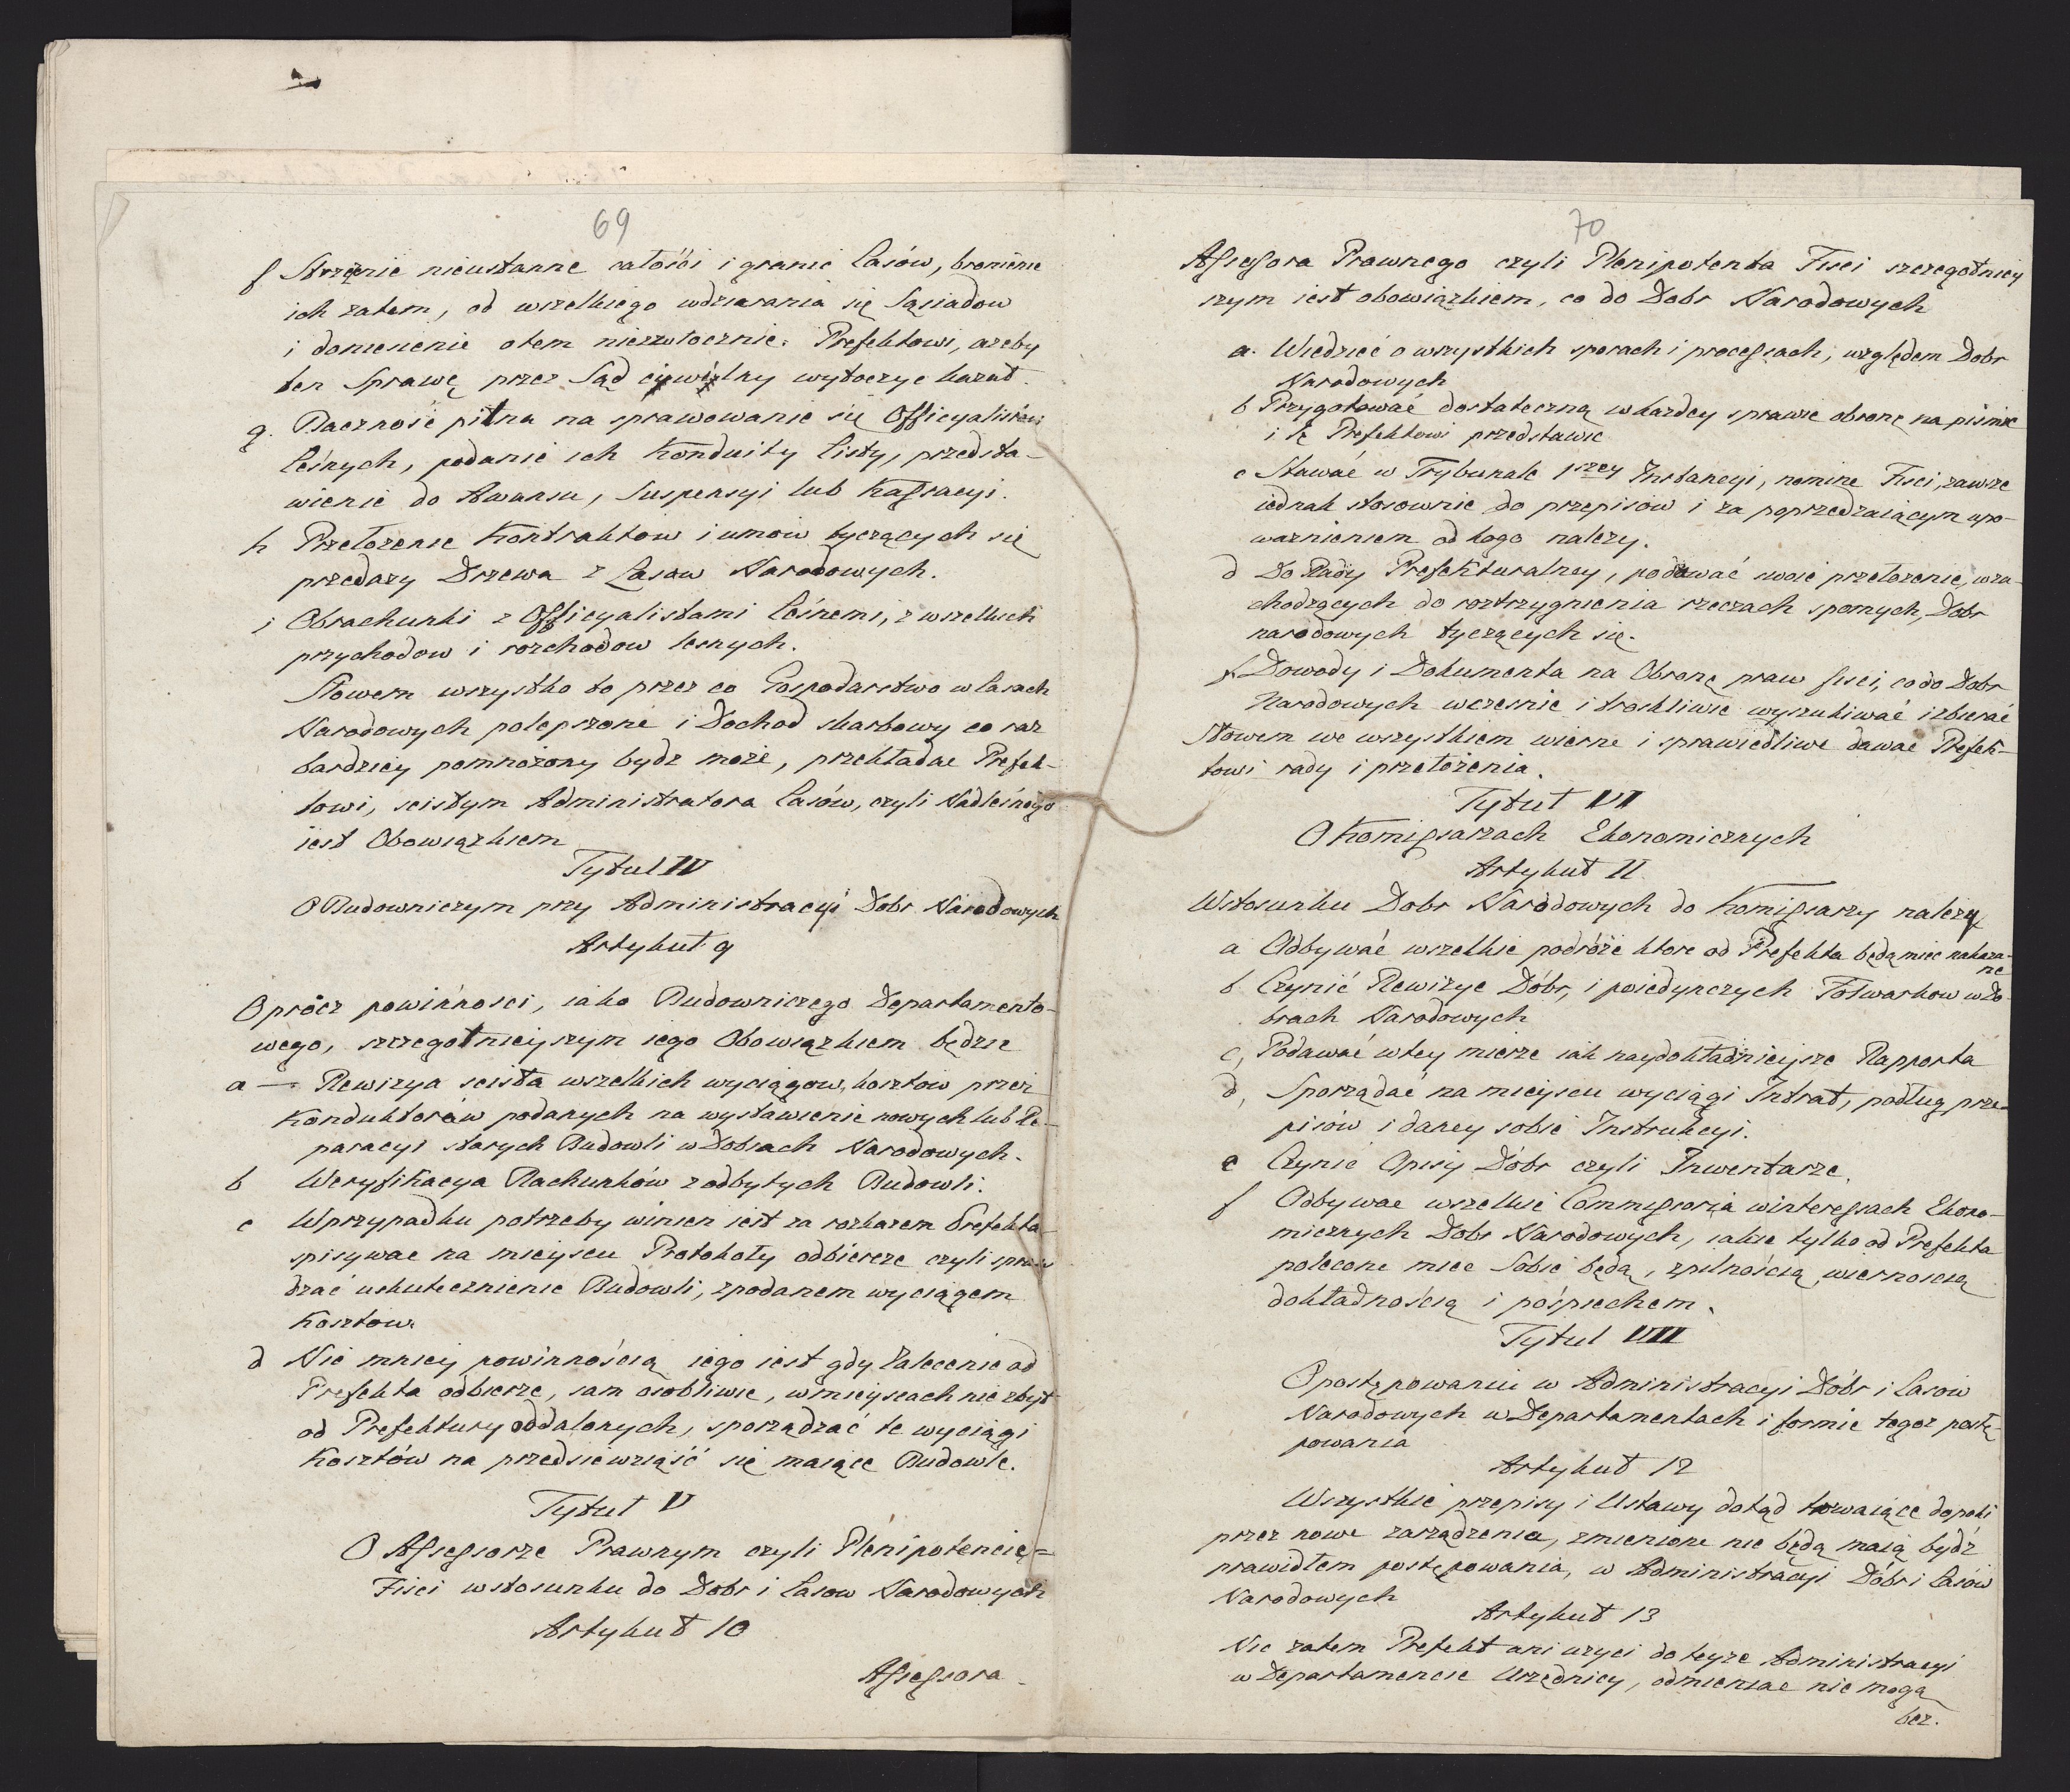 69
f Strzeżenie nieustanne całości i granic Lasów, bronienie
ich zatem, od wszelkiego wdzierania się Sąsiadow
i doniesienie otem niezwłocznie Prefektowi, ażeby
ten Sprawę przez Sąd cywilny wytoczyć kazał.
g. Baczność pilna na sprawowanie się Officyalistow
leśnych, podanie ich Konduity Listy, przedsta-
wienie do Awansu, Suspensyi lub Kassacyi.
h Przełożenie Kontraktow i umow tyczących się
przedaży Drzewa z Lasow Narodowych.
i Obrachunki z Officyalistami Leśnemi, z wszelkich
przychodow i rozchodow lesnych.
Słowem wszystko to przez co Gospodarstwo w lasach
Narodowych polepszone i Dochod skarbowy co raz
bardziey pomnożony bydz może, przekładac Prefek-
towi, scisłym Administratora Lasów, czyli Nadleśnego
iest Obowiązkiem
Tytuł IV
O Budowniczym przy Administracyi Dobr Narodowych
Artykuł 9
Oprócz powinności, iako Budowniczego Departamento-
wego, szczegolnieyszym iego Obowiązkiem będzie
a — Rewizya scisła wszelkich wyciągow, kosztów przez
Konduktorów podanych na wystawienie nowych lub Re-
paracyi starych Budowli w Dobrach Narodowych.
b Weryfikacya Rachunków z odbytych Budowli.
c W przypadku potrzeby winien iest za rozkazem Prefekta
spisywac na mieyscu Protokoły odbiercze czyli spraw
dzać uskutecznienie Budowli, z podanem wyciągem
Kosztow.
d Nie mniey powinnością iego iest gdy Zalecenie od
Prefekta odbierze, sam osobliwie, w mieyscach nie zbyt
od Prefektury oddalonych, sporządzać te wyciągi
Kosztów na przedsiewziąść się maiące Budowle.
Tytuł V
O Assessorze Prawnym czyli Plenipotencie=
Fisci w stosunku do Dobr i Lasow Narodowych
Artykuł 10
Assessora
70
Assessora Prawnego czyli Plenipotenta Fisci szczegolniey
szym iest obowiązkiem, co do Dobr Narodowych
a. Wiedzieć o wszystkich sporach i processach, względem Dobr
Narodowych
b Przygotować dostateczną w każdey sprawie obronę na piśmie
i tę Prefektowi przedstawic
c Stawać w Trybunale 1szey Instancyi, nomine Fisci, zawsze
iednak stosownie do przepisow i za poprzedzaiącym upo-
ważnieniem od kogo nalezy.
d Do Rady Prefekturalney, podawać swoie przełożenie, w za-
chodzących do roztrzygnienia rzeczach spornych, Dobr
narodowych tyczących się.
f Dowody i Dokumenta na Obronę praw fisci, co do Dobr
Narodowych wczesnie i troskliwie wyszukiwać i zbierać
Słowem we wszystkiem wierne i sprawiedliwe dawać Prefek-
towi rady i przełożenia.
Tytuł VI
O Komissarzach Ekonomicznych
Artykuł 11.
W stosunku Dobr Narodowych do Komissarzy należy
a Odbywać wszelkie podróże ktore od Prefekta będą miec nakaza-
ne
b Czynić Rewizye Dóbr, i poiedynczych Folwarkow w Do-
brach Narodowych
c, Podawać w tey mierze iak naydokładnieysze Rapporta
d, Sporządać na mieyscu wyciągi Intrat, podług prze-
pisów i daney sobie Instrukcyi.
e Czynic Opisy Dóbr czyli Inwentarze.
f Odbywac wszelkie Commissoria w interessach Ekono-
micznych Dobr Narodowych, iakie tylko od Prefekta
polecone miec Sobie będą, z pilnością, wiernoscią
dokładnością i pośpiechem.
Tytuł VIII
O postępowaniu w Administracyi Dóbr i Lasow
Narodowych w Departamentach i formie tegoz postę-
powania
Artykuł 12
Wszystkie przepisy i Ustawy dotąd trwaiące dopoki
przez nowe zarządzenia, zmienione nie będą maią bydź
prawidłem postępowania, w Administracyi Dóbr i Lasów
Narodowych
Artykuł 13
Nic zatem Prefekt ani użyci do teyze Administracyi
w Departamencie Urzędnicy, odmieniac nie mogą
bez.